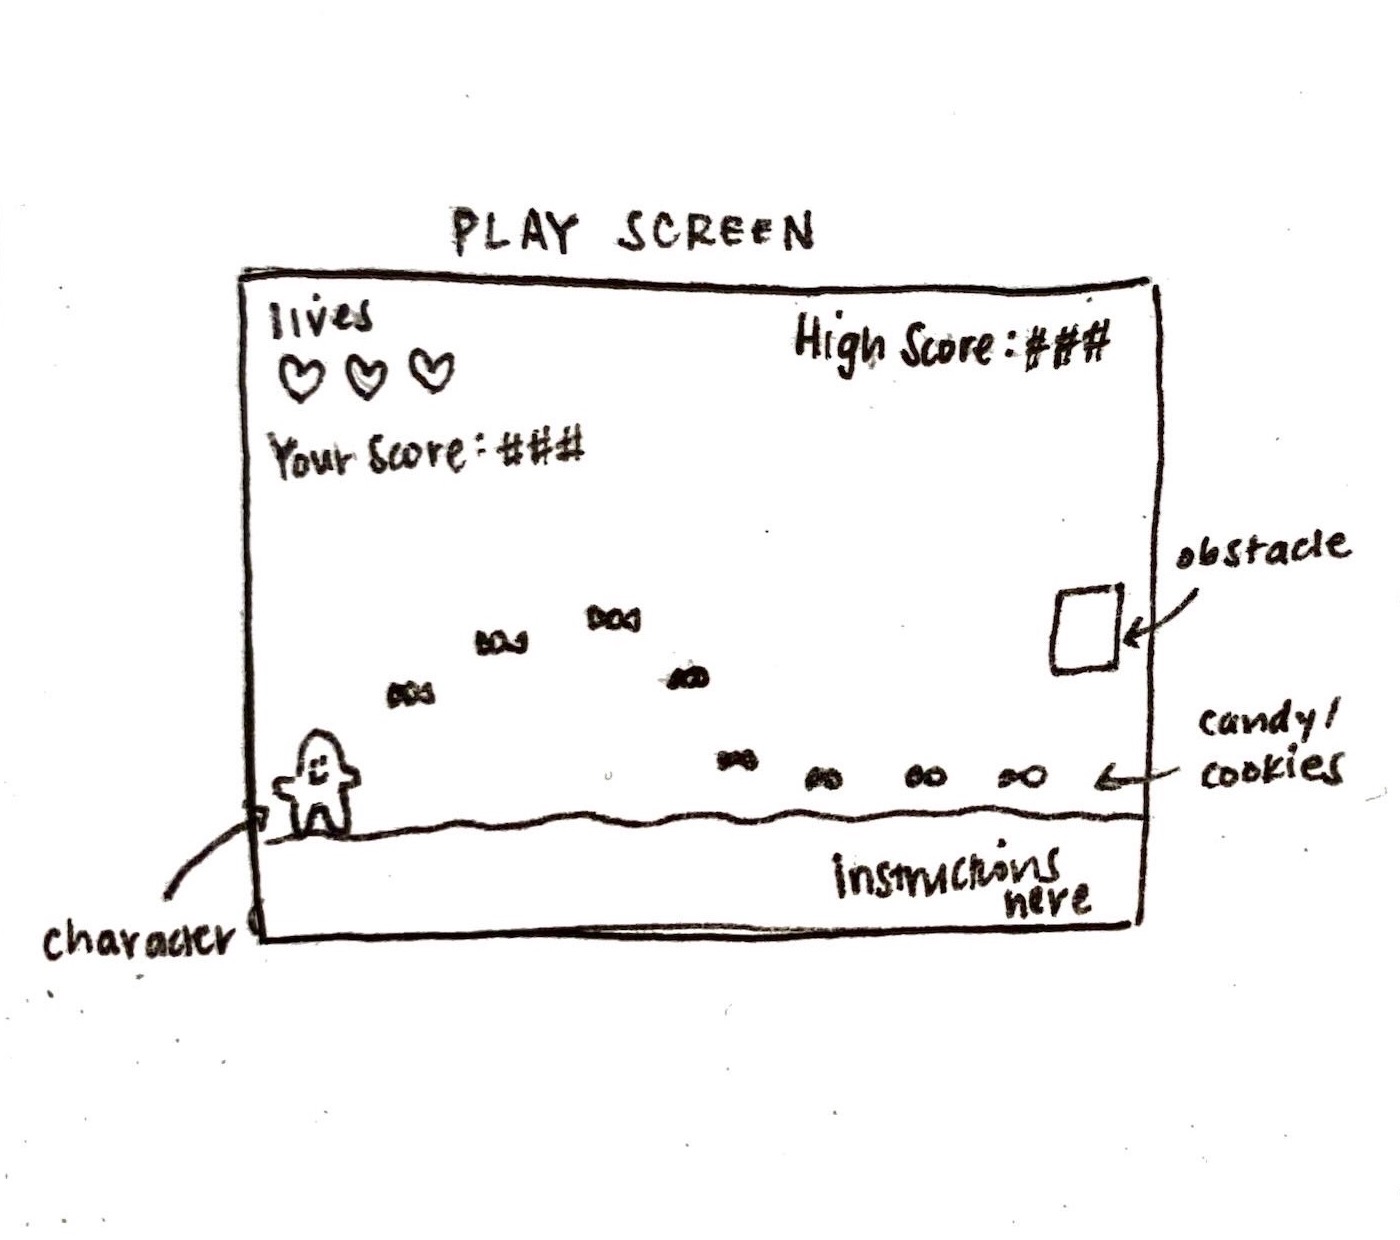 PLAY SCREEN
lives
High Score: ###
Your Score: ###
obstacle
candy/
cookies
instructions
here
character